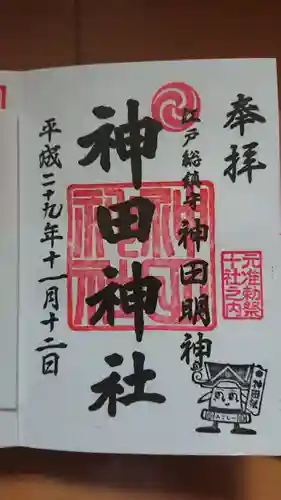 奉拝
元准勅祭
十社之内
江戸総鎮守 神田明神
神田神社
平成二十九年十一月十二日